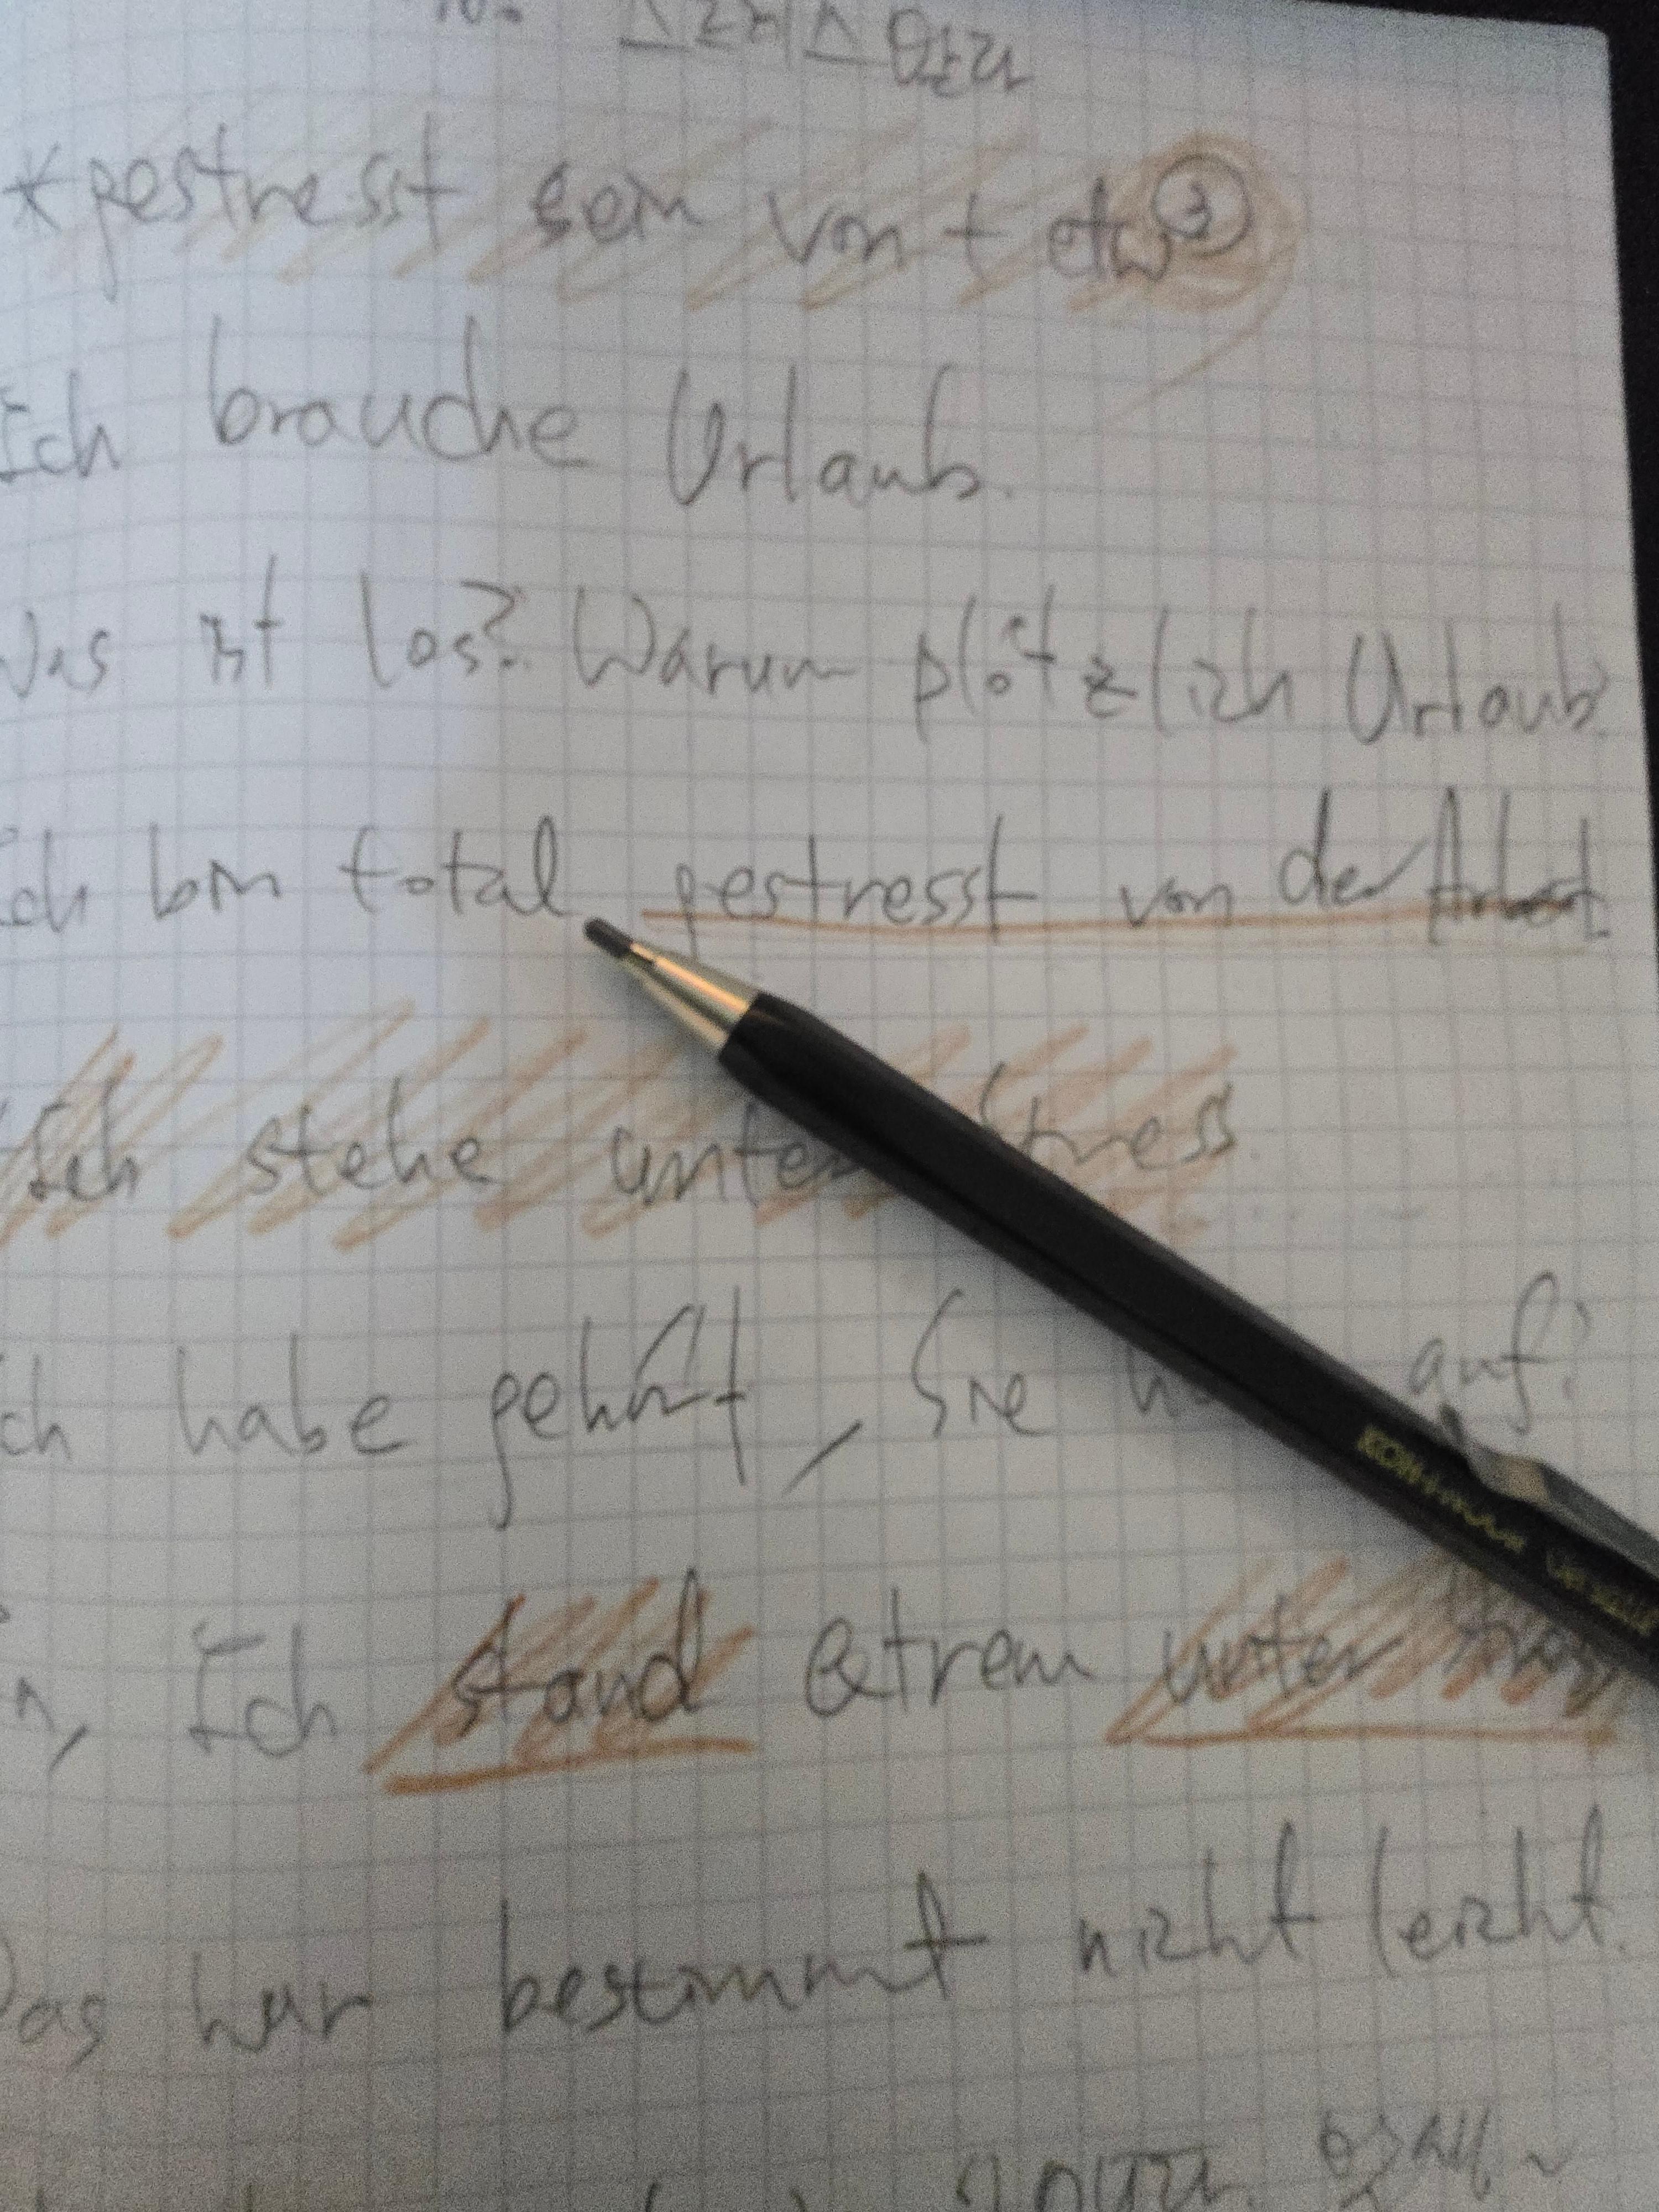 스트레스 받다
*gestresst sein von + etw ③
Ich brauche Urlaub.
Was ist los? Warum plötzlich Urlaub?
Ich bin total gestresst von der Arbeit
Ich stehe unter Stress.
Ich habe gehört, Sie auf?
Ich stand extrem unter
Das war bestimmt nicht leicht.
KOH-I-NOOR